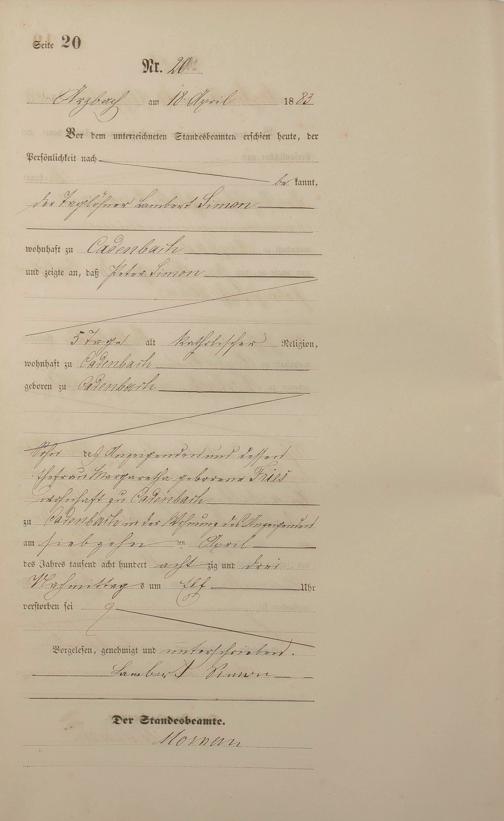 Seite 20
Nr. 20
Arzbach am 18 April 1883
Vor dem unterzeichneten Standesbeamten erschien heute, der
Persönlichkeit nach
be kannt,
der Taglöhner Lambert Simon
wohnhaft zu Cadenbach
und zeigte an, daß Peter Simon
5 Tage alt katholischer Religion,
wohnhaft zu Cadenbach
geboren zu Cadenbach
Sohn des Anzeigenden und dessen
Ehefrau Margaretha geborene Fries
wohnhaft zu Cadenbach
zu Cadenbach in der Wohnung des Anzeigenden
am siebzehn ten April
des Jahres tausend acht hundert acht zig und drei
Nachmittag s um Elf Uhr
verstorben sei
Vorgelesen, genehmigt und unterschrieben.
Lambert Simon
Der Standesbeamte.